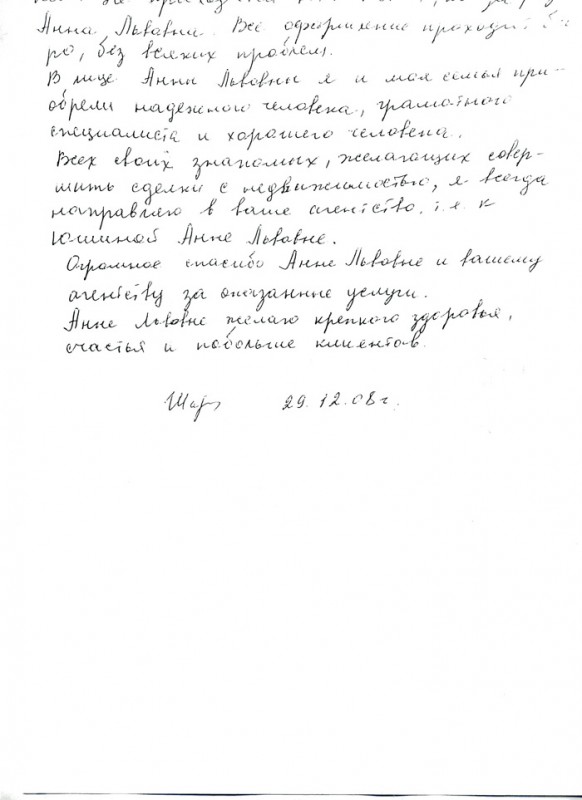 не
Анна Львовна. Все оформление проходит бы-
ро, без всяких проблем.
В лице Анны Львовны я и моя семья при-
обрели надежного человека, грамотного
специалиста и хорошего человека.
Всех своих знакомых, желающих совер-
шить сделки с недвижимостью, я всегда
направляю в ваше агентство, т.е. к
Юшиной Анне Львовне.
Огромное спасибо Анне Львовне и вашему
агентству за оказанные услуги.
Анне Львовне желаю крепкого здоровья,
счастья и побольше клиентов.
29.12.08г.